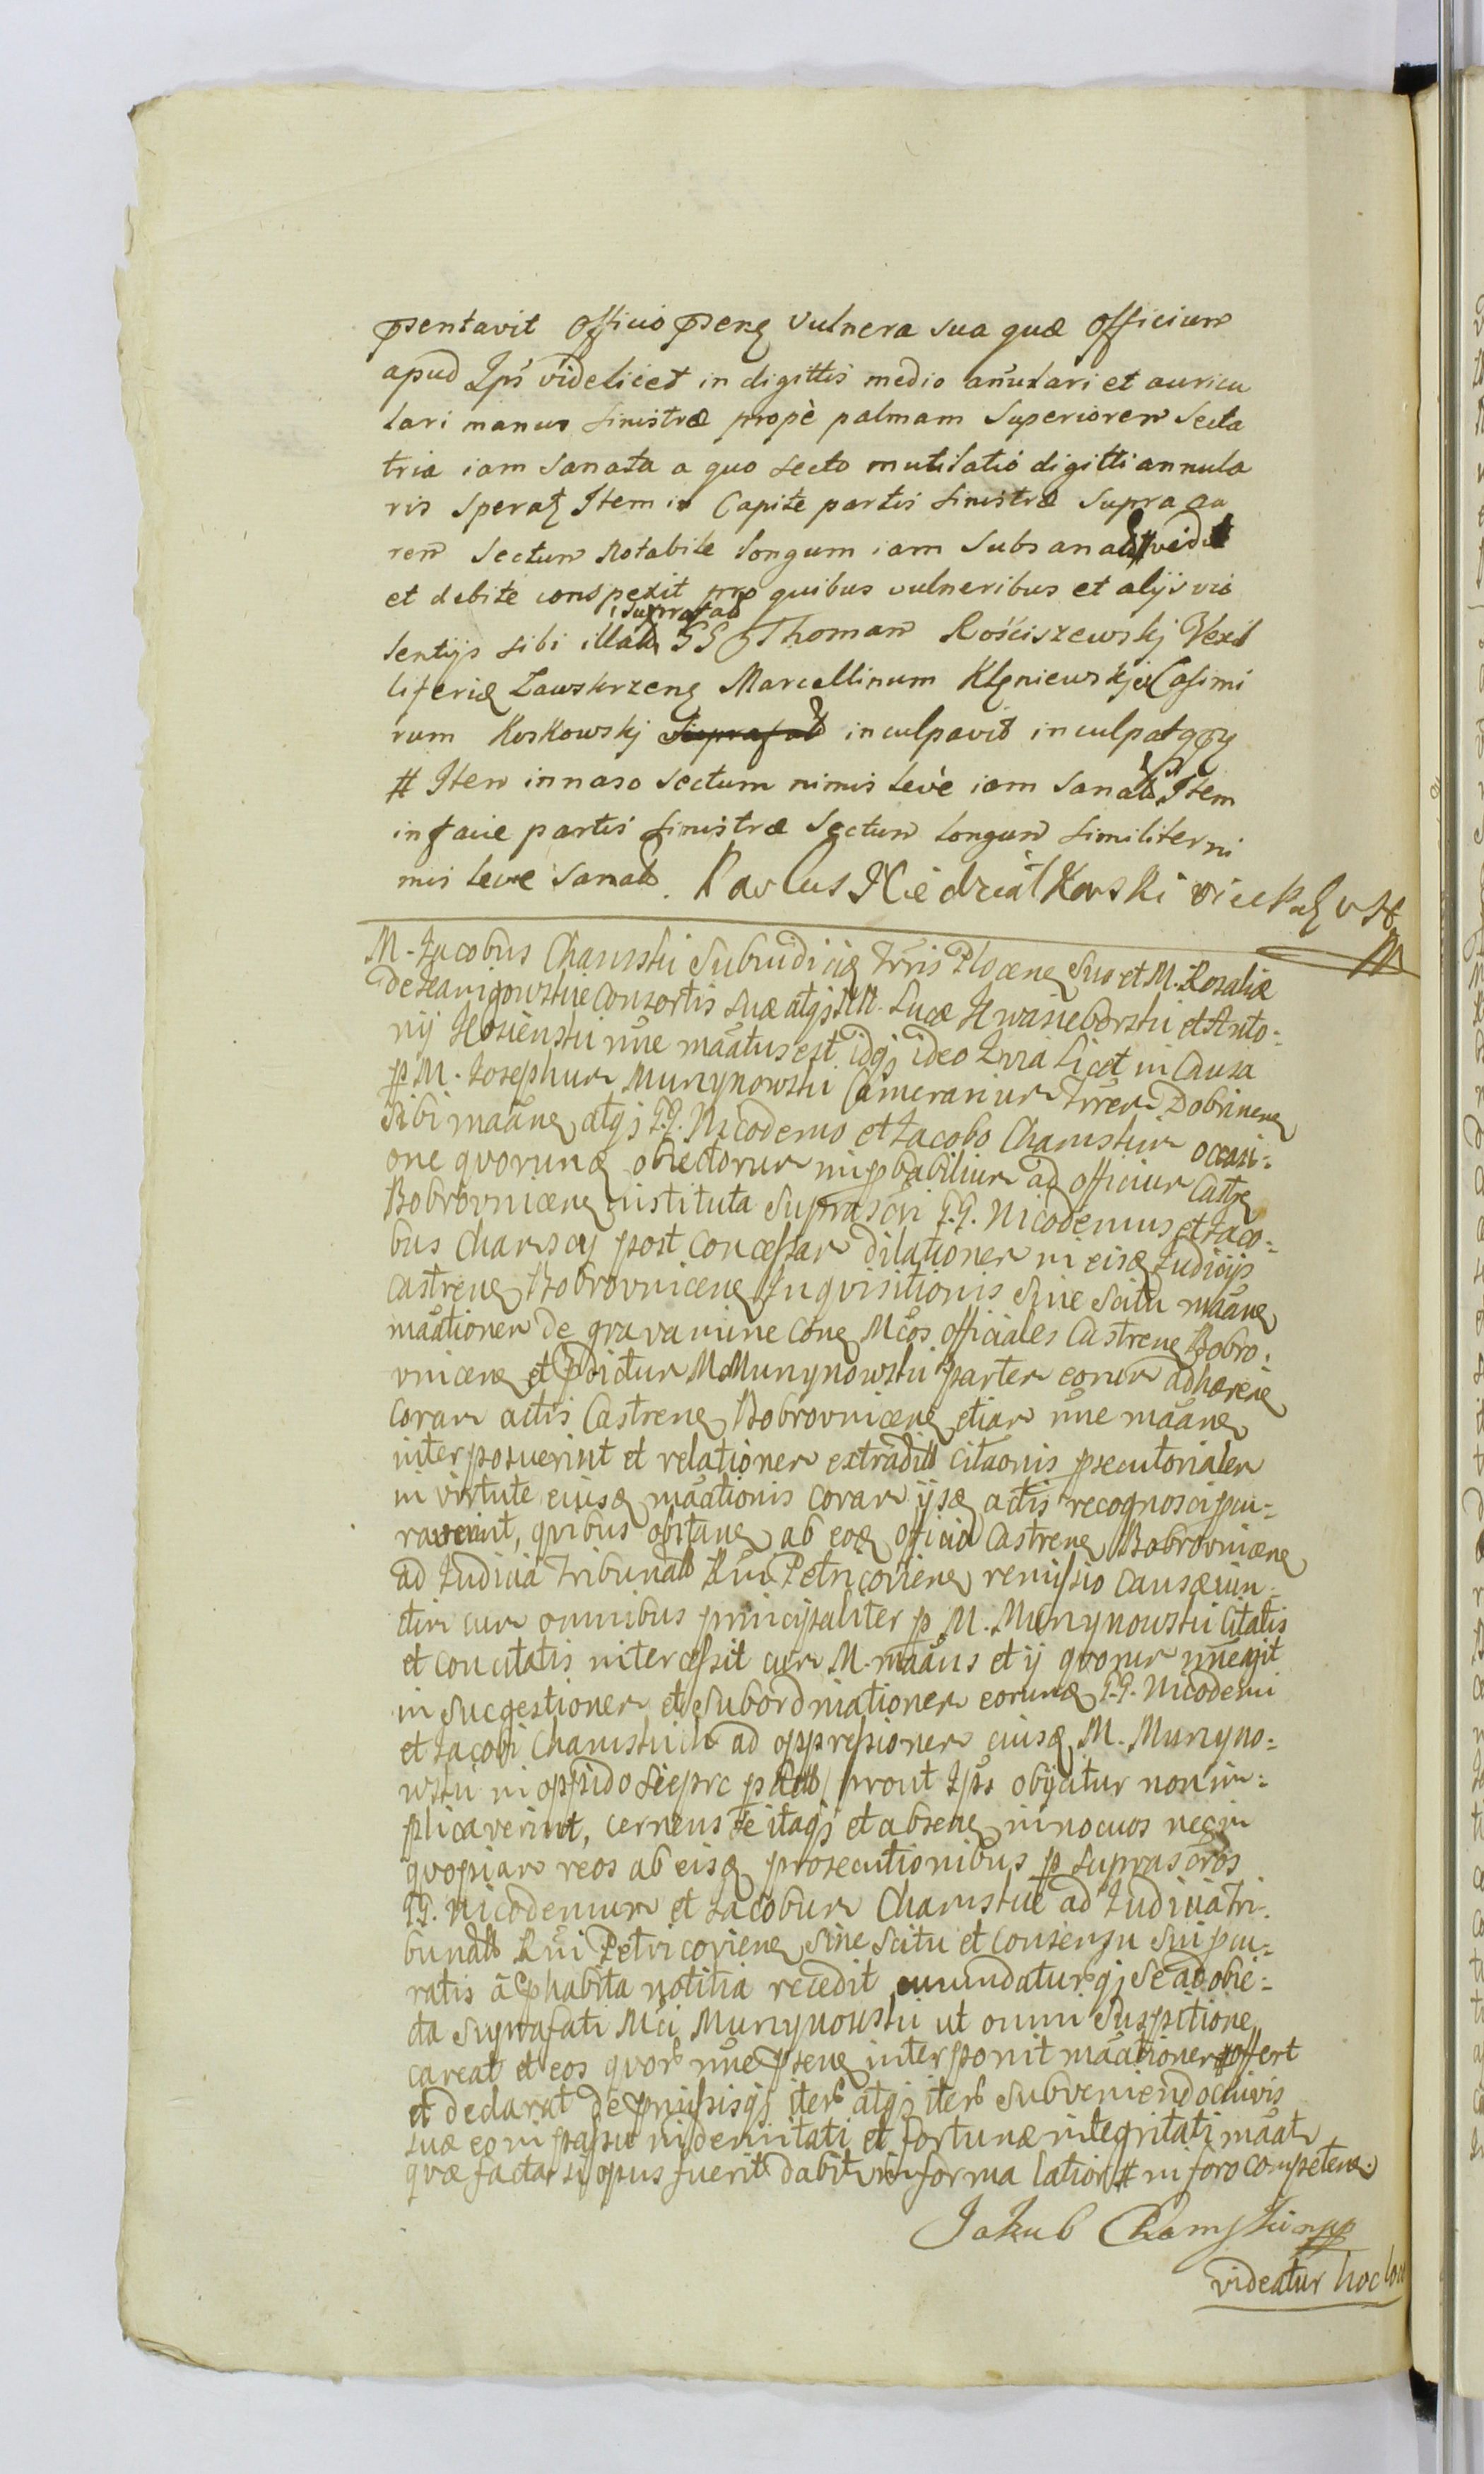 psentavit Officio psenę vulnera sua quæ Officium
apud Ips videlicet in digittis medio anulari et auricu
lari manus sinistræ propè palmam superiorem secta
tria iam sanata a quo secto mutilatió digitti annula
ris speratę Item in Capite partis sinistræ supra au
rem sectum notabile longum iam subsanat # vidit
et debite conspexit pro quibus vulneribus et alijs vio
suprafat
lentijs sibi illat GG Thomam Rościszewskj Vexil
liferię Zawskrzenę Marcellinum Klęniewskj et Casimi
rum Koskowskj suprafat inculpavit inculpatqę
# Item in naso sectum nimis levè iam sanat Item
in facie partis sinistræ sectum longum similiter ni
mis leve sanat. Paulus Niedziałkowski
M. Jacobus Chamski Subiudicię Trris Plocenę Suo et M. Rosaliæ
consortis suæ atqj MM. Lucæ et Anto:
nij nne maatus est idqj ideo Qvia licet in Causa
p M. Josephum Murzynowski Camerarium Trrer Dobrinenę
Sibi maanę atqj GG. Nicodemo et Jacobo Chamskim occasi:
one qvorundę obiectorum improbabilium ad officium Castrę
Bobrovnicenę instituta Suprascri GG. Nicodemus et Jaco:
bus Chamscy post concessam dilationem in eisdę Judicijs
Castrenę Bobrovnicenę Inqvisitionis Sine Scitu maanę
maationem de gravamine conę Mcos officiales Castrenę Bobro:
vnicenę et pdictum M. Murzynowski partem eorum adhærenę
Coram actis Castrenę Bobrovnicenę etiam nne maanę
interposuerint et relationem extradit citaonis psecutorialem
in virtute eiusdę maationis coram ijsdę actis recognosci pcu:
raverint, qvibus obstanę ab eodę officio Castrenę Bobrovnicenę
ad Judicia Tribunal Rni Petricovienę remissio causæ iun:
ctim cum omnibus principaliter p M. Murzynowski citatis
et concitatis intercessit cum M. maans et ij qvorum nne agit
in Suggestionem et Subordinationem eorundę GG. Nicodemi
et Jacobi Chamskich ad oppressionem eiusdę M. Murzyno:
wski in oppido Sieprc prout Ips obijcitur non im:
plicaverint, cernens se itaqj et absenę innocuos neqj in
qvopiam reos ab eisdę prosecutionibus p Suprascros
GG. Nicodemum et Jacobum Chamskie ad Judicia Tri:
bunal Rni Petricovienę Sine Scitu et consensu Sui pcu:
ratis a phabita notitia recedit emundaturqj Se ad obie:
cta Suprafati Mci Murzynowski ut omni Suspitione
careat et eos qvor nne psenę interponit maationem offert
et declarat De pmissisqj iter atqj iter Subveniendo civis
suæ eo in passu indemnitati et fortunæ integritati maat
qvæ facta si opus fuerit dabit in forma latiori # in foro competenę
Jakub Chamski mpp
videatur hoc loco